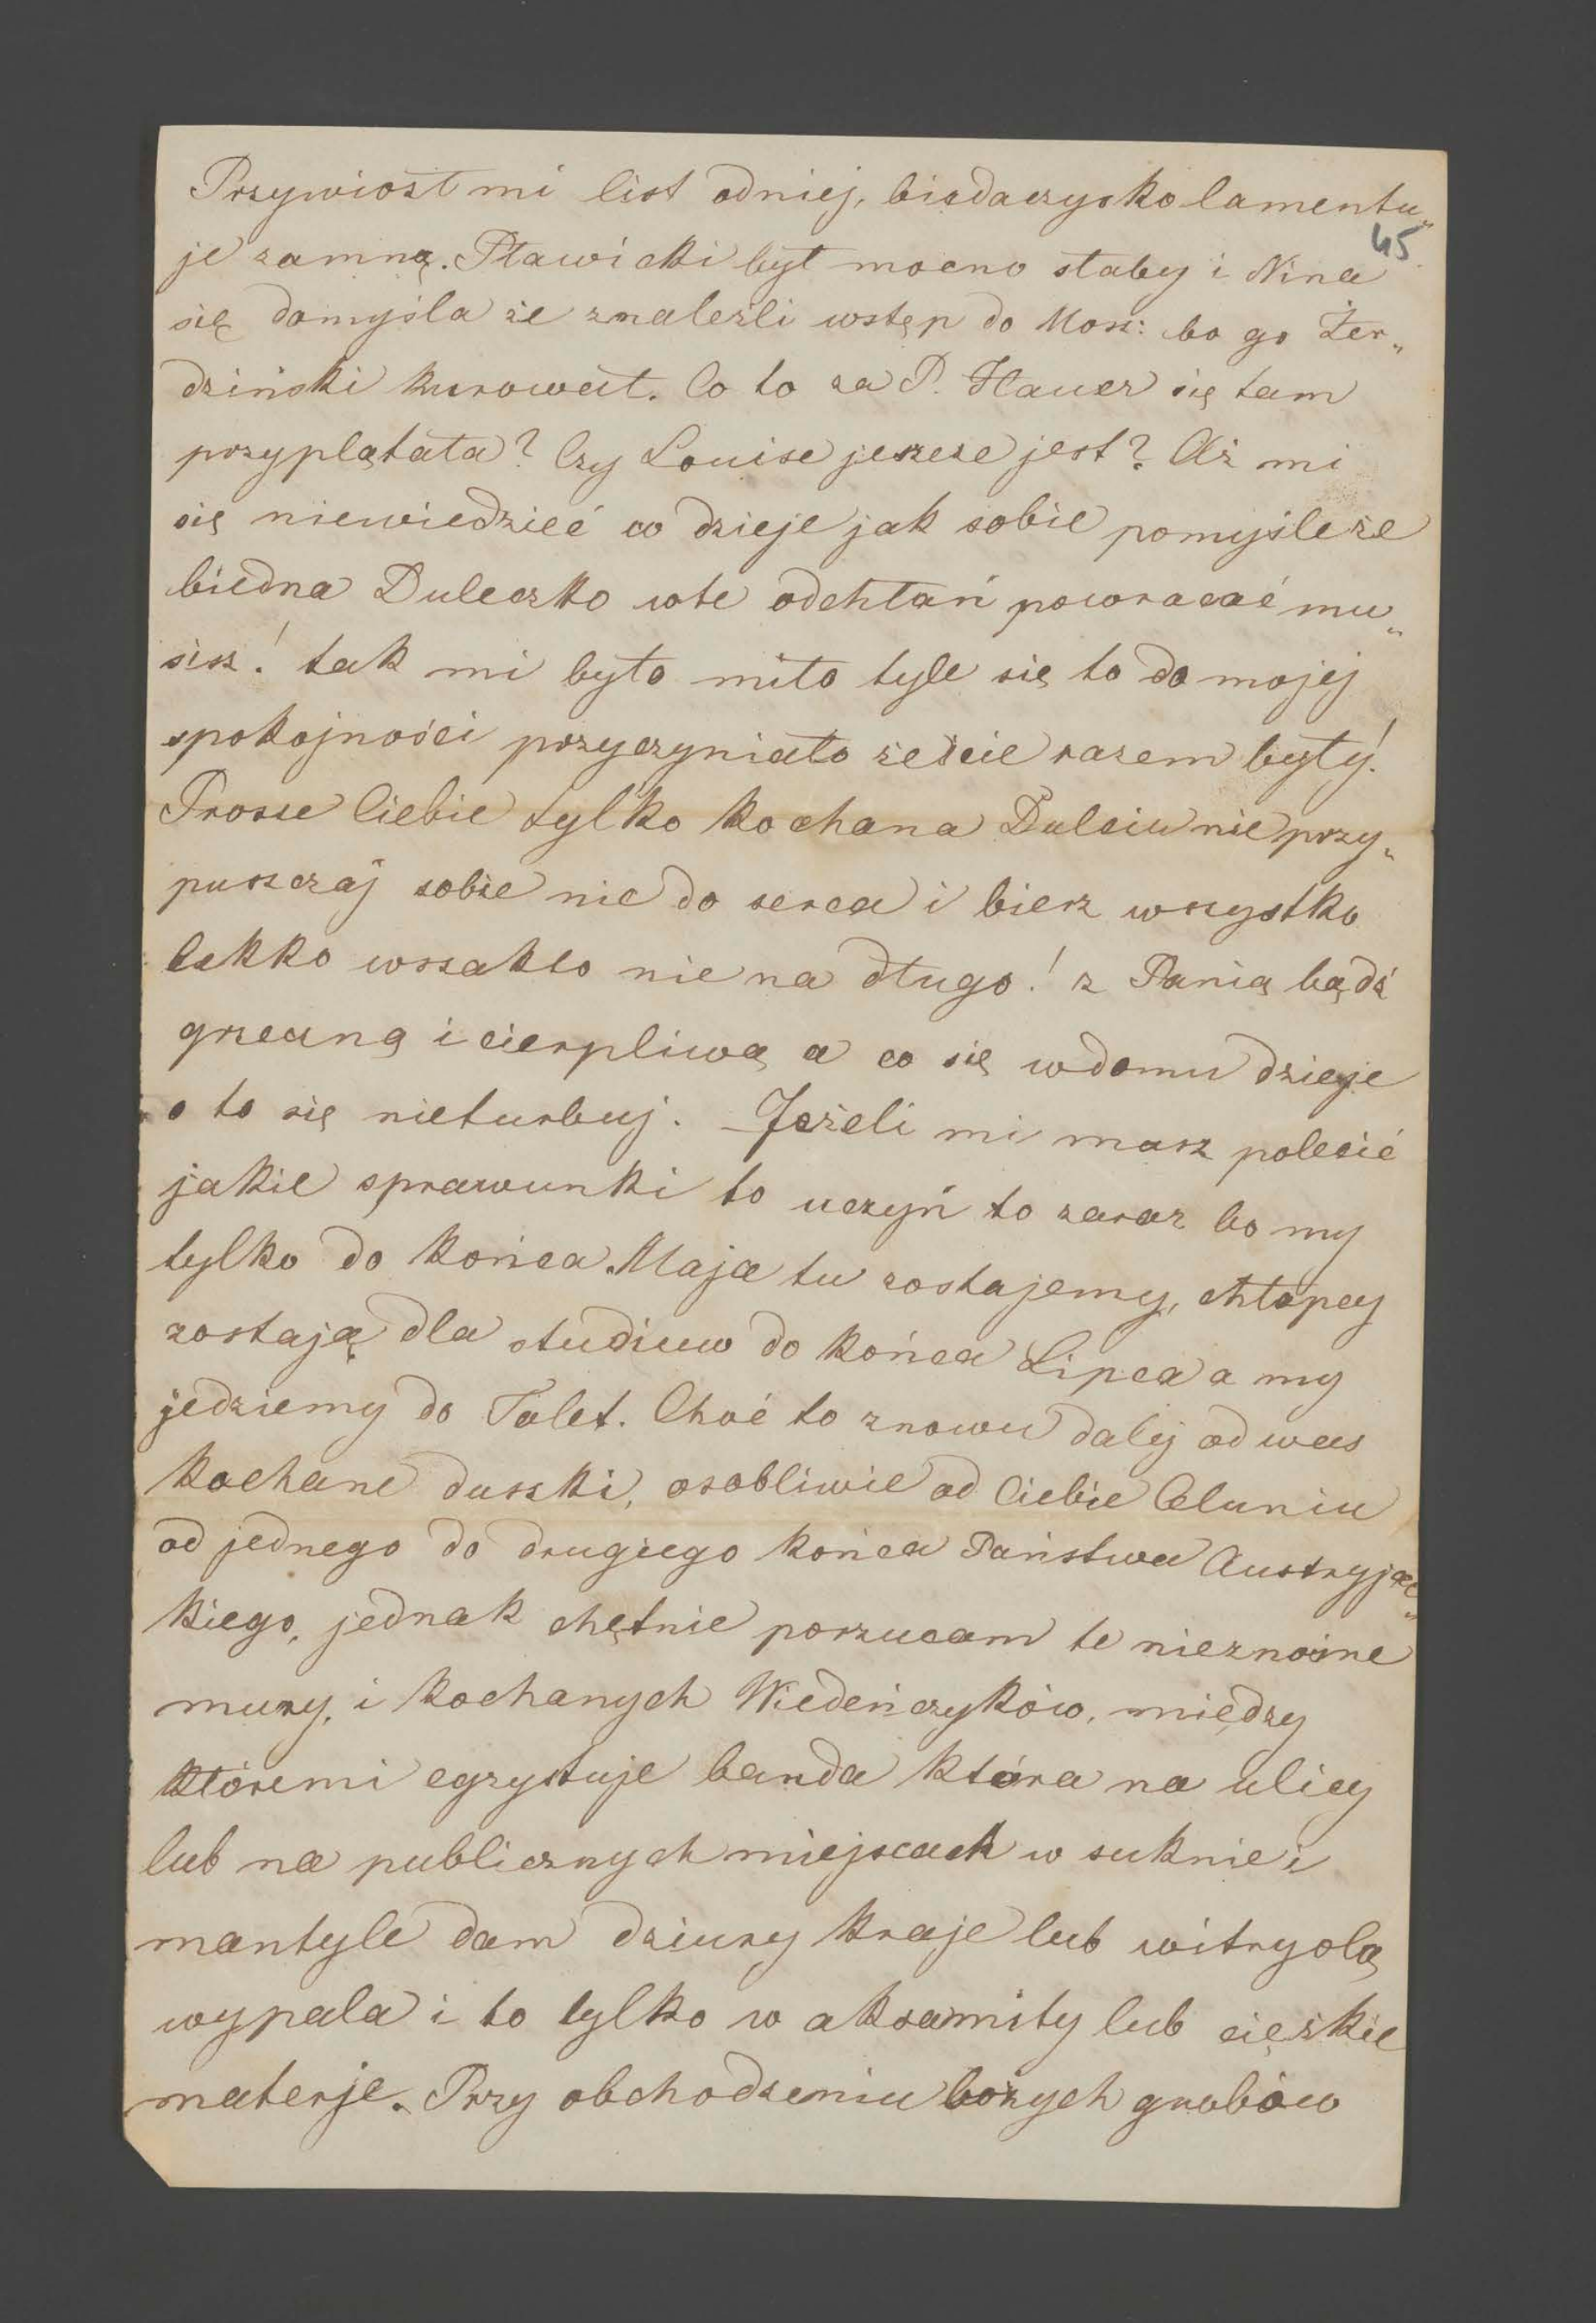 Przywiozł mi list odniej, biedaczysko lamentu„
45
je zamną. Pławicki był mocno słaby i Nina
się domyśla że znaleźli wstęp do Mosz: bo go Żer„
dziński kurował. Co to za P. Hauer się tam
przyplątała? Czy Louise jeszcze jest? Aż mi
się niewiedzieć co dzieje jak sobie pomyśle że
biedna Duleczko wte odchłań powracać mu„
sisz! tak mi było miło tyle się to do mojej
spokojności przyczyniało żeście razem były!
Prosze Ciebie tylko kochana Dulciu nie przy„
puszczaj sobie nic do serca i bierz wszystko
lekko wszakto nie na długo! z Panią bądź
grzeczną i cierpliwą a co się wdomu dzieje
o to się nieturbuj. Jeżeli mi masz polecić
jakie sprawunki to uczyń to zaraz bo my
tylko do końca Maja tu zostajemy, chłopcy
zostają dla studiuw do końca Lipca a my
jedziemy do Talet. Choć to znowu dalej od was
kochane duszki, osobliwie od Ciebie Celuniu
od jednego do drugiego końca Państwa Austryjac„
kiego, jednak chętnie porzucam te nieznośne
mury, i kochanych Wiedeńczyków, między
któremi egzystuje banda która na ulicy
lub na publicznych miejscach w suknie i
mantyle dam dziury kraje lub witryolą
wypala i to tylko w aksamity lub ciężkie
materje. Przy obchodzeniu bożych grobów